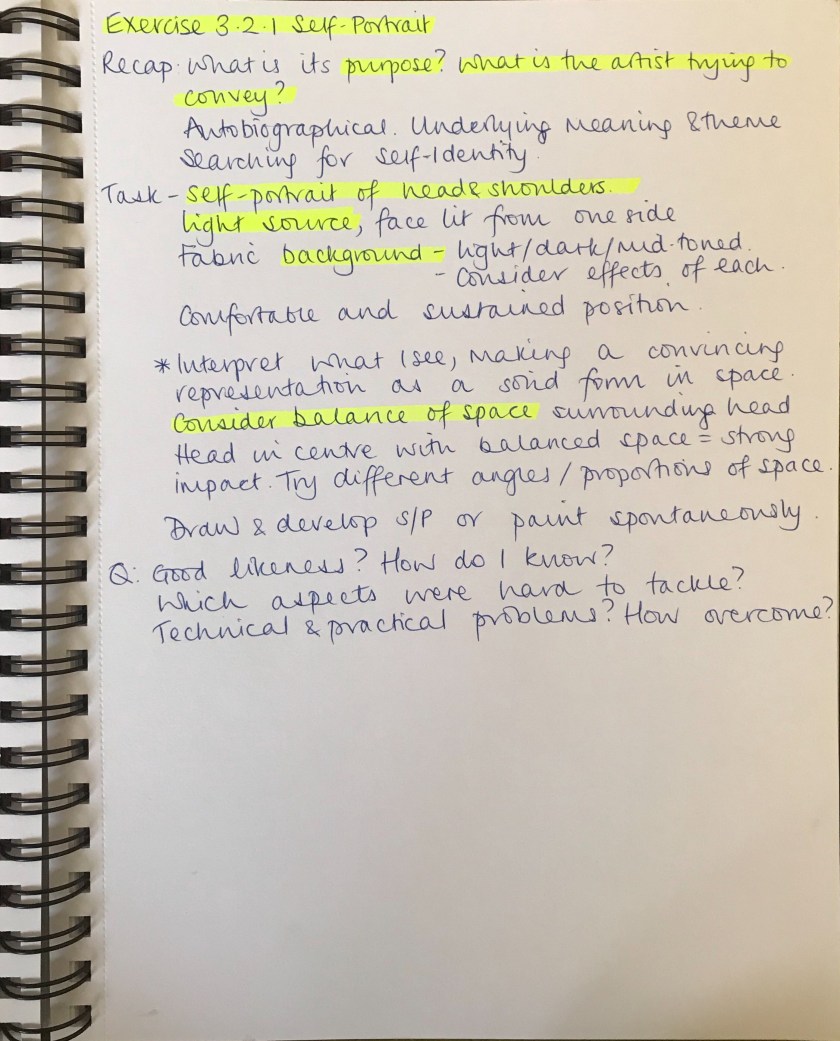 Exercise 3.2.1 Self-Portrait
Recap: What is its purpose? What is the artist trying to
convey?
Autobiographical. Underlying Meaning & theme
Searching for Self-Identity.
Task - Self-portrait of head & shoulders.
light source, face lit from one side
Fabric background - light/dark/mid-toned.
- Consider effects of each.
Comfortable and sustained position.
* Interpret what I see, making a convincing
representation as a solid form in space.
Consider balance of space surrounding head
Head in centre with balanced space = strong
impact. Try different angles/proportions of space.
Draw & develop S/P or paint spontaneously.
Q: Good likeness? How do I know?
Which aspects were hard to tackle?
Technical & practical problems? How overcome?